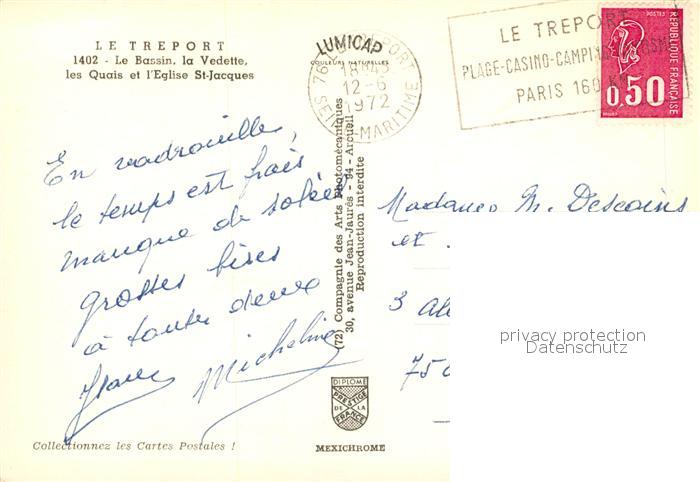 LE TREPORT
1402 - Le Bassin, la Vedette,
les Quais et l'Eglise St-Jacques
LUMICAP
COULEURS NATURELLES
76 LE TREPORT
18H45
12-6
1972
SEINE-MARITIME
LE TREPORT
PLAGE-CASINO-CAMPING
PARIS 160 KM
POSTES
REPUBLIQUE FRANÇAISE
0,50
En vadrouille,
le temps est frais
manque de soleil
grosses bises
à toutes deux
Micheline
(72) Compagnie des Arts Photomécaniques
30, avenue Jean-Jaurès - 94 - Arcueil
Reproduction interdite
Madames M. Descoins
et
3
750
privacy protection
Datenschutz
DIPLOME
PRESTIGE
DE LA
FRANCE
Collectionnez les Cartes Postales !
MEXICHROME